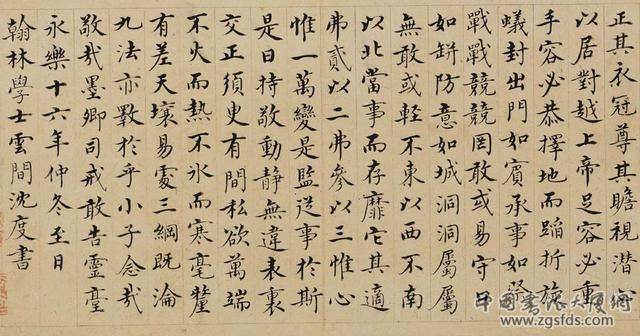 正其衣冠尊其瞻視潛心
以居對越上帝足容必重
手容必恭擇地而蹈折旋
蟻封出門如賓承事如祭
戰戰兢兢罔敢或易守口
如缾防意如城洞洞屬屬
無敢或輕不東以西不南
以北當事而存靡它其適
弗貳以二弗參以三惟心
惟一萬變是監從事於斯
是日持敬動靜無違表裏
交正須臾有間私欲萬端
不火而熱不氷而寒毫釐
有差天壤易處三綱既淪
九法亦斁於乎小子念哉
敬哉墨卿司戒敢告靈臺
永樂十六年仲冬至日
翰林學士雲間沈度書
中国書法大师网
www.zgsfds.com